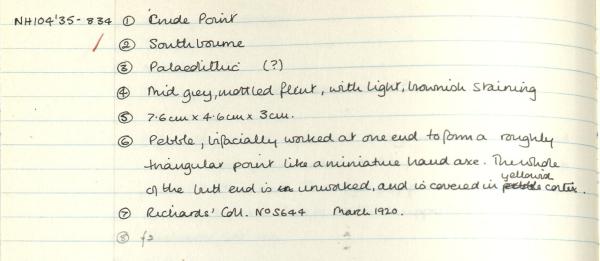 NH104'35-834 ① Crude Point
② Southbourne
③ Palaeolithic (?)
④ Mid grey, mottled flint, with light, brownish staining
⑤ 7.6cm x 4.6cm x 3cm.
⑥ Pebble, bifacially worked at one end to form a roughly
triangular point like a miniature hand axe. The whole
of the butt end is unworked, and is covered in yellowish cortex.
⑦ Richards' Coll. No 5644 March 1920.
⑧